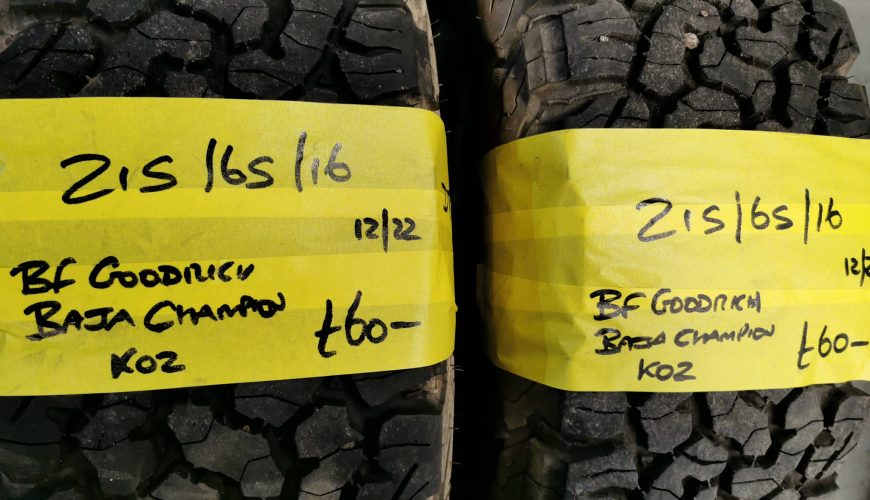 215/65/16
12/22
BF GOODRICH
BAJA CHAMPION
£60-
KO2
215/65/16
12/2
BF GOODRICH
BAJA CHAMPION
£60-
KO2